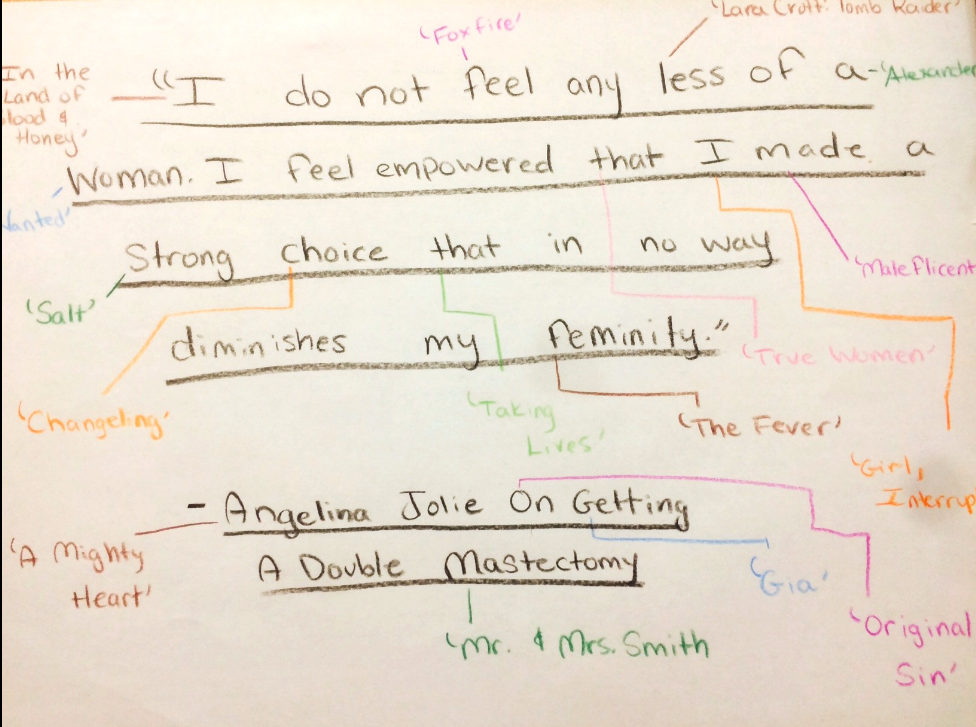 'Lara Croft: Tomb Raider'
'Foxfire'
In the
Land of
lood &
Honey'
"I do not feel any less of a
-'Alexander
Woman. I feel empowered that I made a
anted'
Strong choice that in no way
'Maleficent
'Salt'
diminishes my feminity."
'True Women'
'Changeling'
'Taking
Lives'
'The Fever'
'Girl,
Interrup
- Angelina Jolie On Getting
'A Mighty
Heart'
A Double Mastectomy
'Gia'
'Original
Sin'
'Mr. & Mrs. Smith